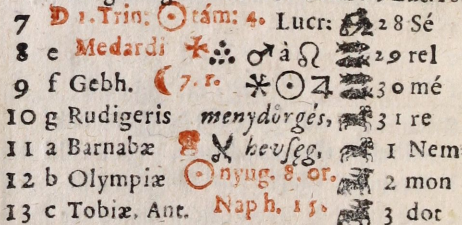 7 D 1. Trin: ☉ tám: 4. Lucr: 28 Sé
8 e Medardi ♂ à ♌ 29 rel
9 f Gebh. ☾ 7. 1. ⚹ ☉ ♃ 30 mé
10 g Rudigeris menydörgés, 31 re
11 a Barnabæ hevſeg, 1 Nem
12 b Olympiæ ☉ nyug. 8. or. 2 mon
13 c Tobiæ, Ant. Nap h. 15. 3 dot